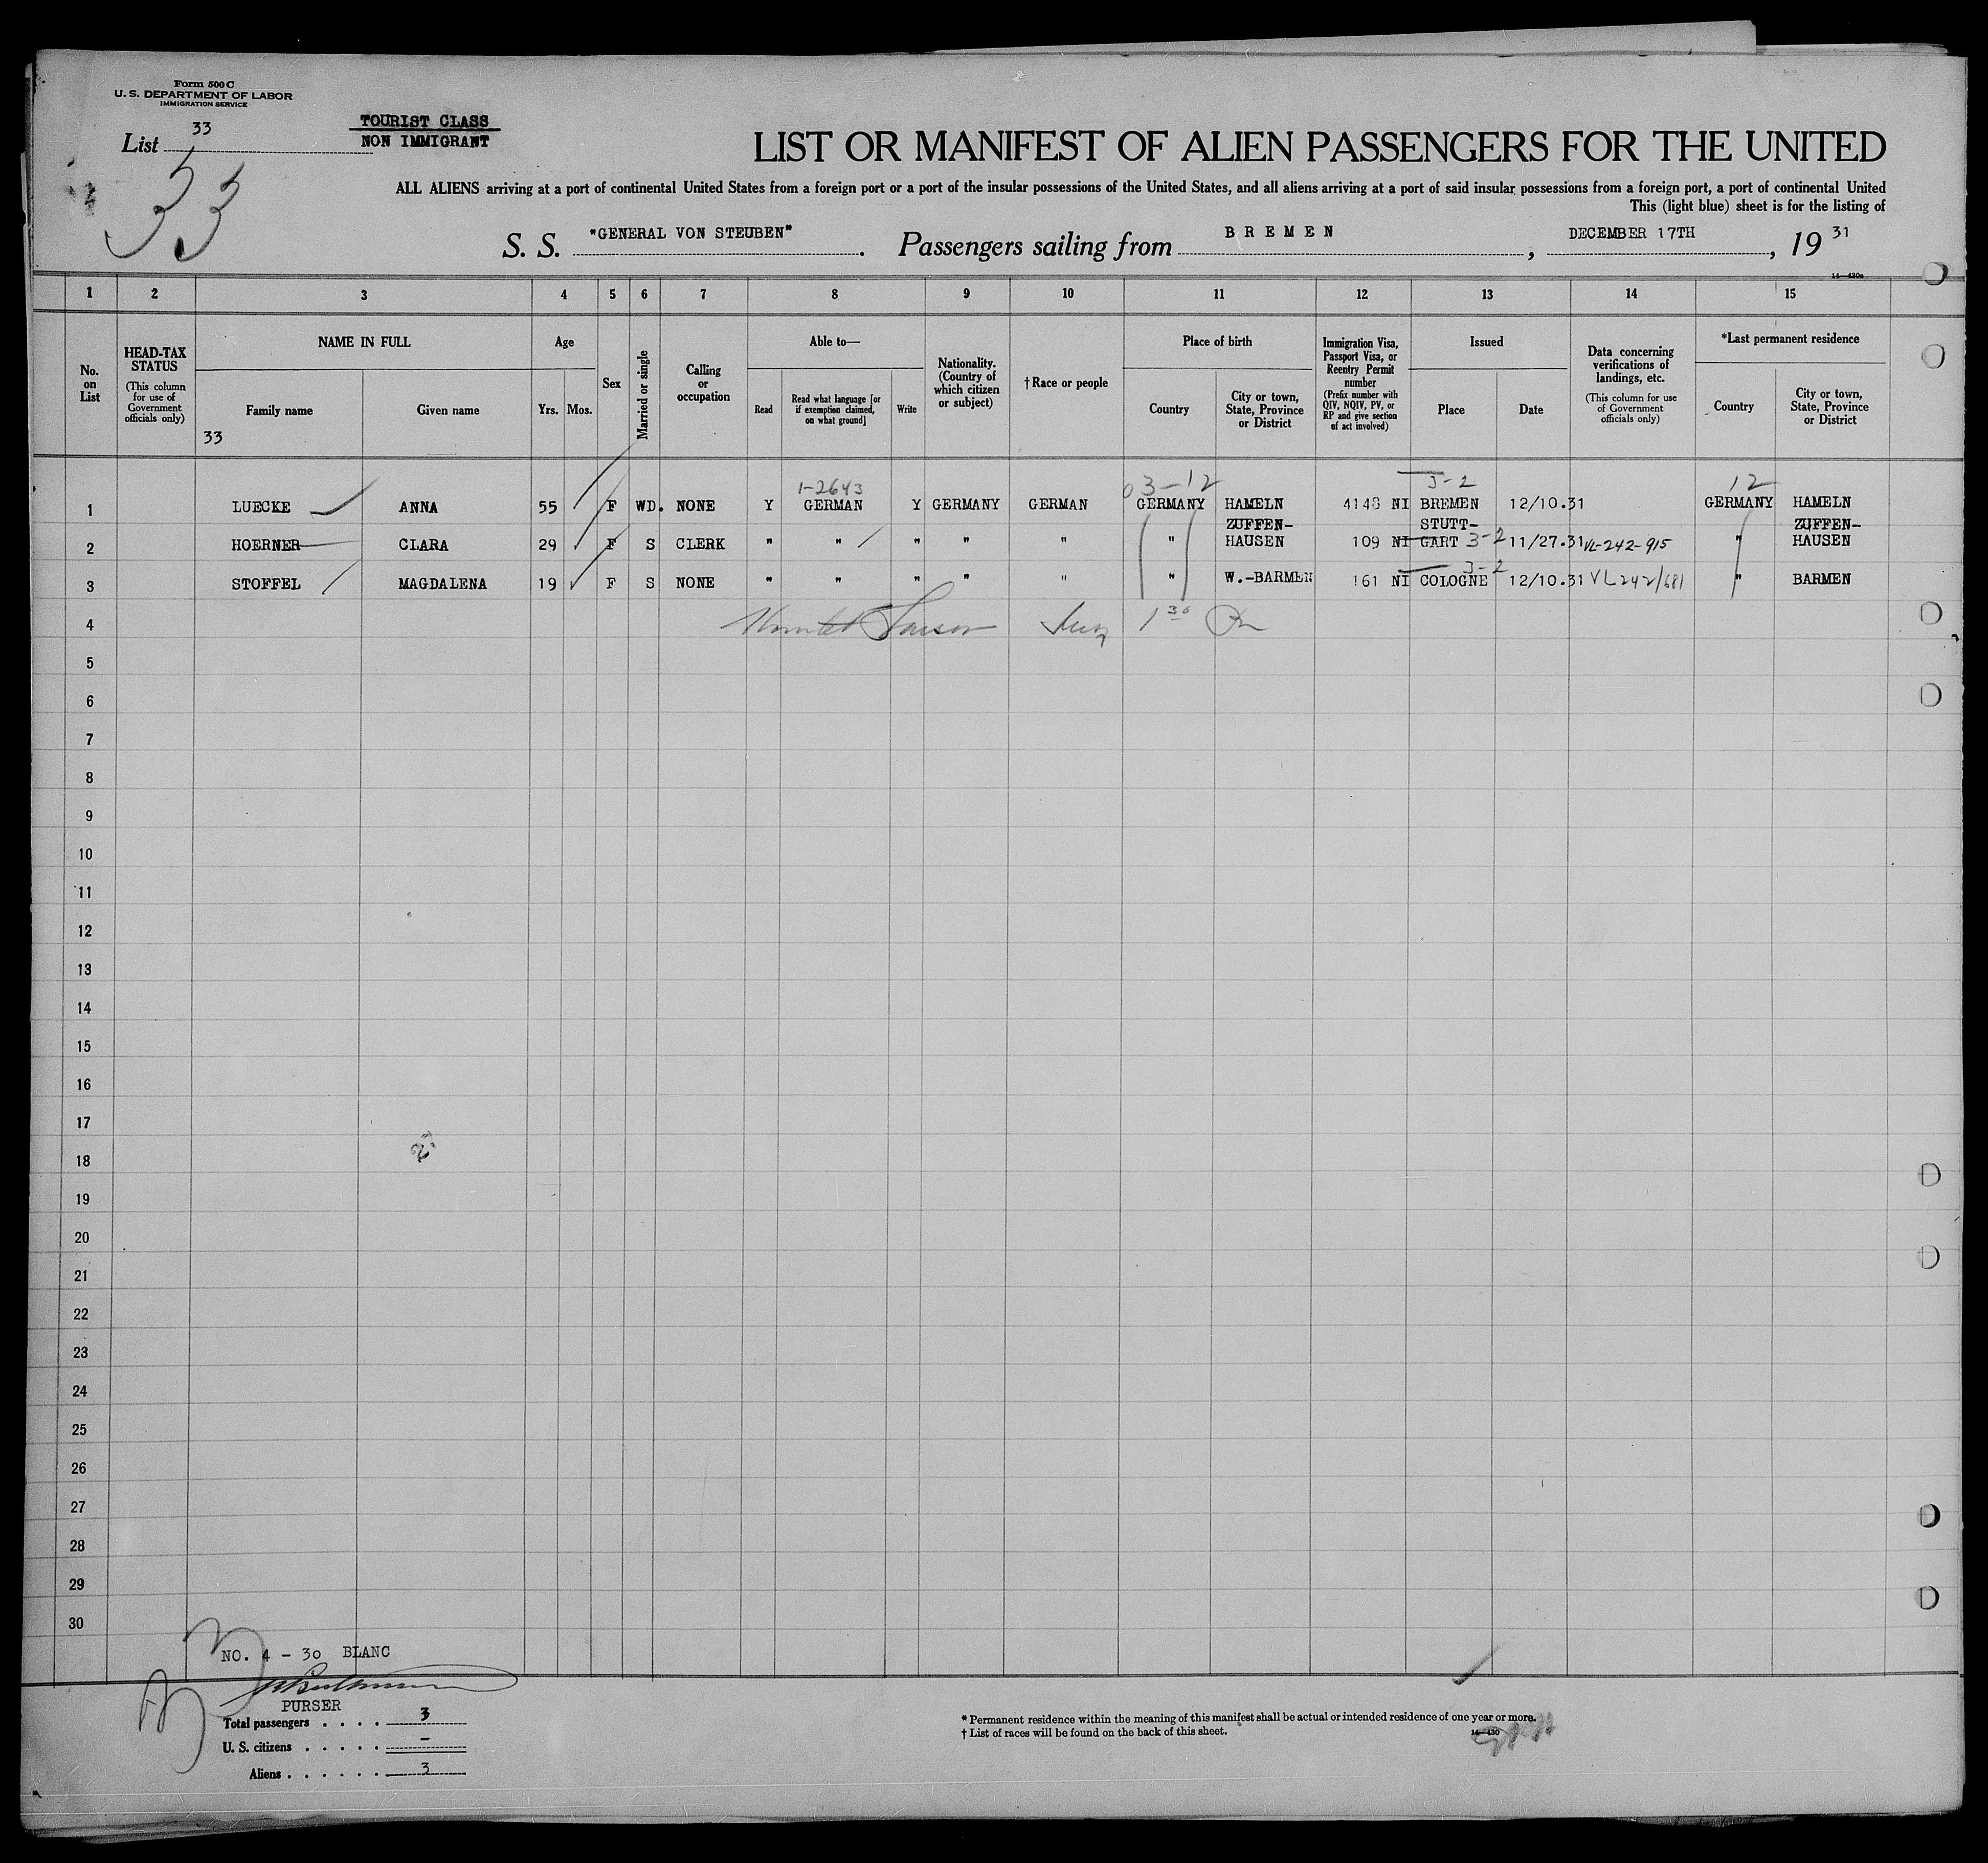 Form 500 C
U. S. DEPARTMENT OF LABOR
IMMIGRATION SERVICE
List 33
TOURIST CLASS
NON IMMIGRANT
33
LIST OR MANIFEST OF ALIEN PASSENGERS FOR THE UNITED
ALL ALIENS arriving at a port of continental United States from a foreign port or a port of the insular possessions of the United States, and all aliens arriving at a port of said insular possessions from a foreign port, a port of continental United
This (light blue) sheet is for the listing of
S. S. "GENERAL VON STEUBEN". Passengers sailing from BREMEN, DECEMBER 17TH, 19 31
1 2 3 4 5 6 7 8 9 10 11 12 13 14 15
No. on List
HEAD-TAX STATUS (This column for use of Government officials only)
NAME IN FULL
Family name
Given name
33
Age
Yrs. Mos.
Sex
Married or single
Calling or occupation
Able to—
Read
Read what language [or if exemption claimed, on what ground]
Write
Nationality. (Country of which citizen or subject)
†Race or people
Place of birth
Country
City or town, State, Province or District
Immigration Visa, Passport Visa, or Reentry Permit number (Prefix number with QIV, NQIV, PV, or RP and give section of act involved)
Issued
Place
Date
Data concerning verifications of landings, etc. (This column for use of Government officials only)
*Last permanent residence
Country
City or town, State, Province or District
1-2643 03-12 3-2 12
1 LUECKE ANNA 55 F WD. NONE Y GERMAN Y GERMANY GERMAN GERMANY HAMELN 4148 NI BREMEN 12/10.31 GERMANY HAMELN
ZUFFEN- STUTT- ZUFFEN-
2 HOERNER CLARA 29 F S CLERK " " " " " " HAUSEN 109 NI GART 3-2 11/27.31 VL-242-915 " HAUSEN
3 STOFFEL MAGDALENA 19 F S NONE " " " " " " W.-BARMEN 161 NI COLOGNE 3-2 12/10.31 VL242/681 " BARMEN
4
5
6
7
8
9
10
11
12
13
14
15
16
17
18
19
20
21
22
23
24
25
26
27
28
29
30
NO. 4 - 30 BLANC
PURSER
Total passengers . . . . 3
U. S. citizens . . . . . -
Aliens . . . . . . 3
* Permanent residence within the meaning of this manifest shall be actual or intended residence of one year or more.
† List of races will be found on the back of this sheet.
14—430